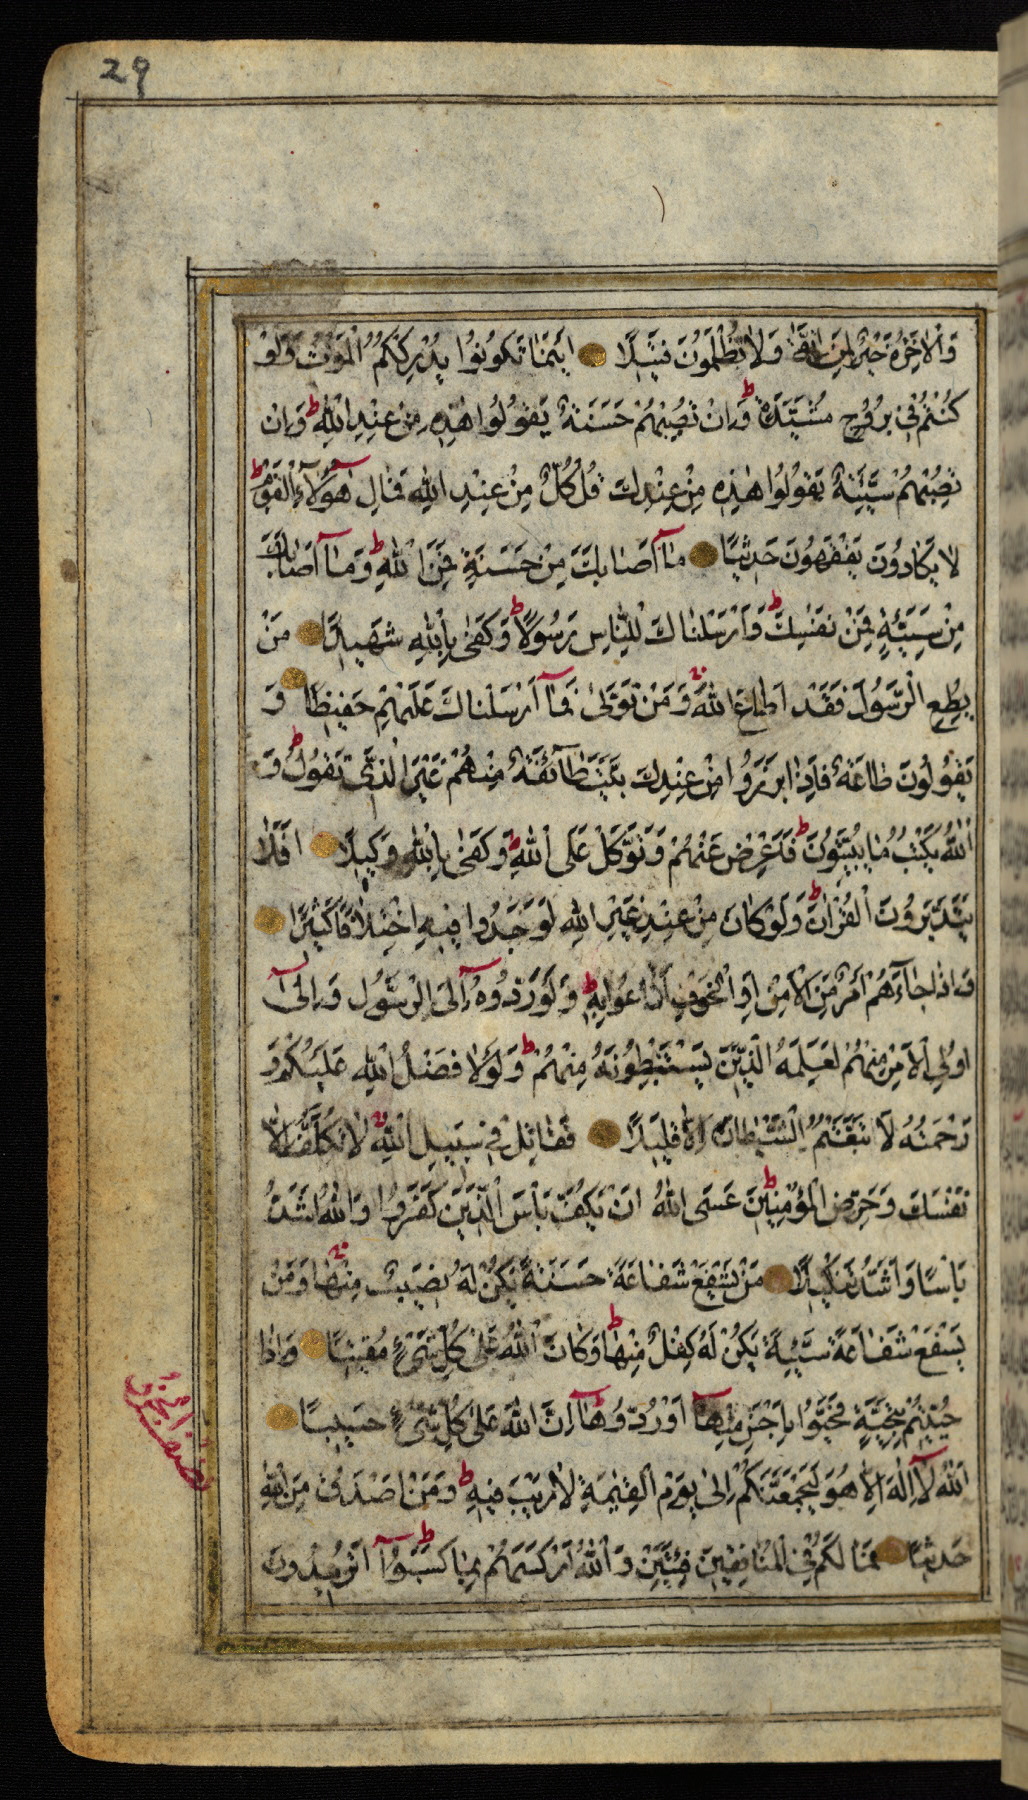 29
وَالْاٰخِرَةُ خَيْرٌ لِمَنِ اتَّقٰى وَلَا تُظْلَمُونَ فَتِيلًا اَيْنَمَا تَكُونُوا يُدْرِكْكُمُ الْمَوْتُ وَلَوْ
كُنْتُمْ فِى بُرُوجٍ مُشَيَّدَةٍ ط وَاِنْ تُصِبْهُمْ حَسَنَةٌ يَقُولُوا هٰذِهِ مِنْ عِنْدِ اللّٰهِ ط وَاِنْ
تُصِبْهُمْ سَيِّئَةٌ يَقُولُوا هٰذِهِ مِنْ عِنْدِكَ قُلْ كُلٌّ مِنْ عِنْدِ اللّٰهِ فَمَالِ هٰٓؤُلَآءِ الْقَوْمِ ط
لَا يَكَادُونَ يَفْقَهُونَ حَدِيثًا مَآ اَصَابَكَ مِنْ حَسَنَةٍ فَمِنَ اللّٰهِ ط وَمَآ اَصَابَكَ
مِنْ سَيِّئَةٍ فَمِنْ نَفْسِكَ ط وَاَرْسَلْنَاكَ لِلنَّاسِ رَسُولًا ط وَكَفٰى بِاللّٰهِ شَهِيدًا مَنْ
يُطِعِ الرَّسُولَ فَقَدْ اَطَاعَ اللّٰهَ وَمَنْ تَوَلّٰى فَمَآ اَرْسَلْنَاكَ عَلَيْهِمْ حَفِيظًا وَ
يَقُولُونَ طَاعَةٌ فَاِذَا بَرَزُوا مِنْ عِنْدِكَ بَيَّتَ طَآئِفَةٌ مِنْهُمْ غَيْرَ الَّذِى تَقُولُ ط وَ
اللّٰهُ يَكْتُبُ مَا يُبَيِّتُونَ ط فَاَعْرِضْ عَنْهُمْ وَتَوَكَّلْ عَلَى اللّٰهِ ط وَكَفٰى بِاللّٰهِ وَكِيلًا اَفَلَا
يَتَدَبَّرُونَ الْقُرْاٰنَ ط وَلَوْ كَانَ مِنْ عِنْدِ غَيْرِ اللّٰهِ لَوَجَدُوا فِيهِ اخْتِلَافًا كَثِيرًا
وَاِذَا جَآءَهُمْ اَمْرٌ مِنَ الْاَمْنِ اَوِ الْخَوْفِ اَذَاعُوا بِهِ ط وَلَوْ رَدُّوهُ اِلَى الرَّسُولِ وَاِلٰٓى
اُولِى الْاَمْرِ مِنْهُمْ لَعَلِمَهُ الَّذِينَ يَسْتَنْبِطُونَهُ مِنْهُمْ ط وَلَوْلَا فَضْلُ اللّٰهِ عَلَيْكُمْ وَ
رَحْمَتُهُ لَاتَّبَعْتُمُ الشَّيْطَانَ اِلَّا قَلِيلًا فَقَاتِلْ فِى سَبِيلِ اللّٰهِ لَا تُكَلَّفُ اِلَّا
نَفْسَكَ وَحَرِّضِ الْمُؤْمِنِينَ ط عَسَى اللّٰهُ اَنْ يَكُفَّ بَأْسَ الَّذِينَ كَفَرُوا وَاللّٰهُ اَشَدُّ
بَأْسًا وَاَشَدُّ تَنْكِيلًا مَنْ يَشْفَعْ شَفَاعَةً حَسَنَةً يَكُنْ لَهُ نَصِيبٌ مِنْهَا وَمَنْ
يَشْفَعْ شَفَاعَةً سَيِّئَةً يَكُنْ لَهُ كِفْلٌ مِنْهَا ط وَكَانَ اللّٰهُ عَلٰى كُلِّ شَىْءٍ مُقِيتًا وَاِذَا
حُيِّيتُمْ بِتَحِيَّةٍ فَحَيُّوا بِاَحْسَنَ مِنْهَآ اَوْ رُدُّوهَا ط اِنَّ اللّٰهَ عَلٰى كُلِّ شَىْءٍ حَسِيبًا
اَللّٰهُ لَآ اِلٰهَ اِلَّا هُوَ لَيَجْمَعَنَّكُمْ اِلٰى يَوْمِ الْقِيٰمَةِ لَا رَيْبَ فِيهِ ط وَمَنْ اَصْدَقُ مِنَ اللّٰهِ
حَدِيثًا فَمَا لَكُمْ فِى الْمُنَافِقِينَ فِئَتَيْنِ وَاللّٰهُ اَرْكَسَهُمْ بِمَا كَسَبُوا ط اَتُرِيدُونَ